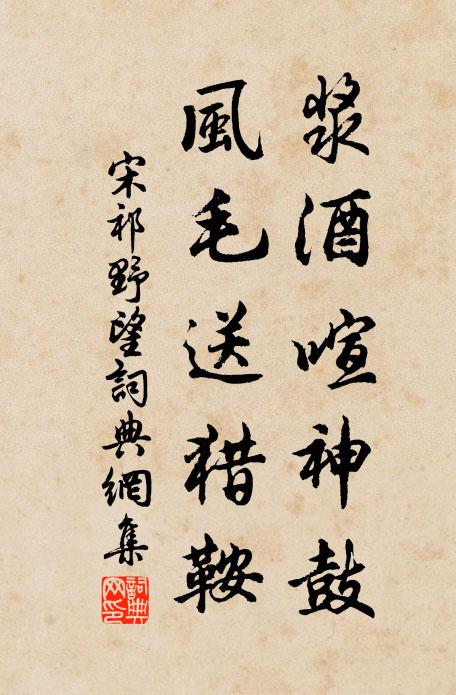 漿酒喧神鼓
風毛送猎鞍
宋祁野望詞典網集
詞典